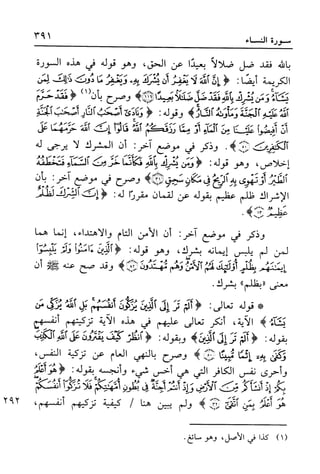 سورة النساء
٣٩١
بالله فقد ضل ضلالاً بعيدًا عن الحق، وهو قوله في هذه السورة
الكريمة أيضًا: ﴿إِنَّ اللَّهَ لَا يَغْفِرُ أَن يُشْرَكَ بِهِ وَيَغْفِرُ مَا دُونَ ذَٰلِكَ لِمَن
يَشَاءُ وَمَن يُشْرِكْ بِاللَّهِ فَقَدْ ضَلَّ ضَلَالًا بَعِيدًا ﴾ وصرح بأن(١) ﴿ فَقَدْ حَرَّمَ
اللَّهُ عَلَيْهِ الْجَنَّةَ وَمَأْوَاهُ النَّارُ ﴾ وقوله: ﴿ وَنَادَىٰ أَصْحَابُ النَّارِ أَصْحَابَ الْجَنَّةِ
أَنْ أَفِيضُوا عَلَيْنَا مِنَ الْمَاءِ أَوْ مِمَّا رَزَقَكُمُ اللَّهُ قَالُوا إِنَّ اللَّهَ حَرَّمَهُمَا عَلَى
الْكَافِرِينَ ﴾. وذكر في موضع آخر: أن المشرك لا يرجى له
إخلاص، وهو قوله: ﴿ وَمَن يُشْرِكْ بِاللَّهِ فَكَأَنَّمَا خَرَّ مِنَ السَّمَاءِ فَتَخْطَفُهُ
الطَّيْرُ أَوْ تَهْوِي بِهِ الرِّيحُ فِي مَكَانٍ سَحِيقٍ ﴾ وصرح في موضع آخر: بأن
الإشراك ظلم عظيم بقوله عن لقمان مقررا له: ﴿ إِنَّ الشِّرْكَ لَظُلْمٌ
عَظِيمٌ ﴾.
وذكر في موضع آخر: أن الأمن التام والاهتداء، إنما هما
لمن لم يلبس إيمانه بشرك، وهو قوله: ﴿ الَّذِينَ آمَنُوا وَلَمْ يَلْبِسُوا
إِيمَانَهُم بِظُلْمٍ أُولَٰئِكَ لَهُمُ الْأَمْنُ وَهُم مُّهْتَدُونَ ﴾ وقد صح عنه ﷺ أن
معنى «بظلم» بشرك.
* قوله تعالى: ﴿ أَلَمْ تَرَ إِلَى الَّذِينَ يُزَكُّونَ أَنفُسَهُم بَلِ اللَّهُ يُزَكِّي مَن
يَشَاءُ ﴾ الآية، أنكر تعالى عليهم في هذه الآية تزكيتهم أنفسهم
بقوله: ﴿ أَلَمْ تَرَ إِلَى الَّذِينَ ﴾ وبقوله: ﴿ انظُرْ كَيْفَ يَفْتَرُونَ عَلَى اللَّهِ الْكَذِبَ
وَكَفَىٰ بِهِ إِثْمًا مُّبِينًا ﴾ وصرح بالنهي العام عن تزكية النفس،
وأحرى نفس الكافر التي هي أخس شيء وأنجسه بقوله: ﴿ هُوَ أَعْلَمُ
بِكُمْ إِذْ أَنشَأَكُم مِّنَ الْأَرْضِ وَإِذْ أَنتُمْ أَجِنَّةٌ فِي بُطُونِ أُمَّهَاتِكُمْ فَلَا تُزَكُّوا أَنفُسَكُمْ
هُوَ أَعْلَمُ بِمَنِ اتَّقَىٰ ﴾ ولم يبين هنا / كيفية تزكيتهم أنفسهم، ٢٩٢
(١) كذا في الأصل، وهو سائغ.